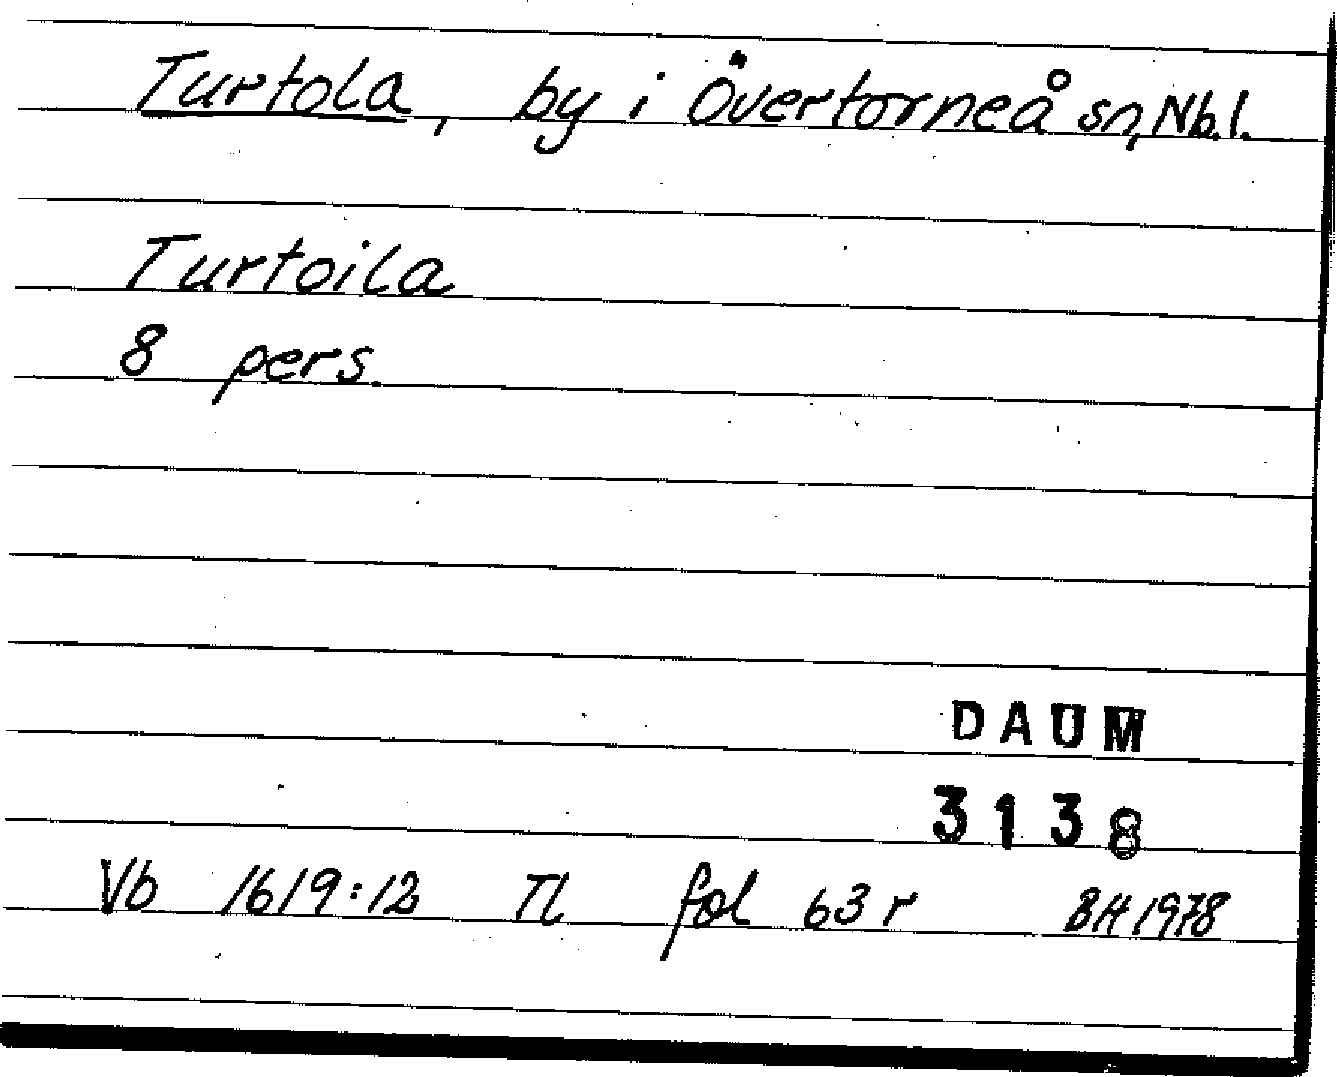 Turtola, by i Övertorneå sn, Nb.l.
Turtoila
8 pers.
DAUM
3138
Vb 1619:12 TL fol 63 r BH 1978